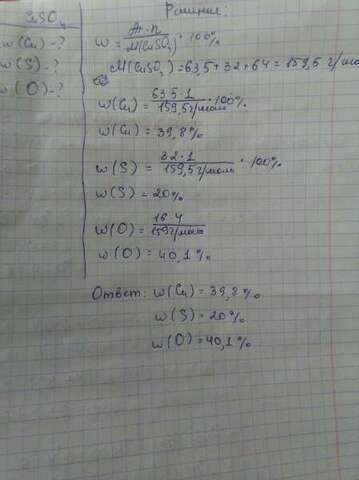 uSO4
Решение:
w(Cu) - ?
w(S) - ?
w(O) - ?
w = Ar·n / M(CuSO4) · 100%
M(CuSO4) = 63,5 + 32 + 64 = 159,5 г/мо
w(Cu) = 63,5·1 / 159,5 г/моль · 100%
w(Cu) = 39,8%
w(S) = 32·1 / 159,5 г/моль · 100%
w(S) = 20%
w(O) = 16·4 / 159 г/моль
w(O) = 40,1%
Ответ: w(Cu) = 39,8%
w(S) = 20%
w(O) = 40,1%